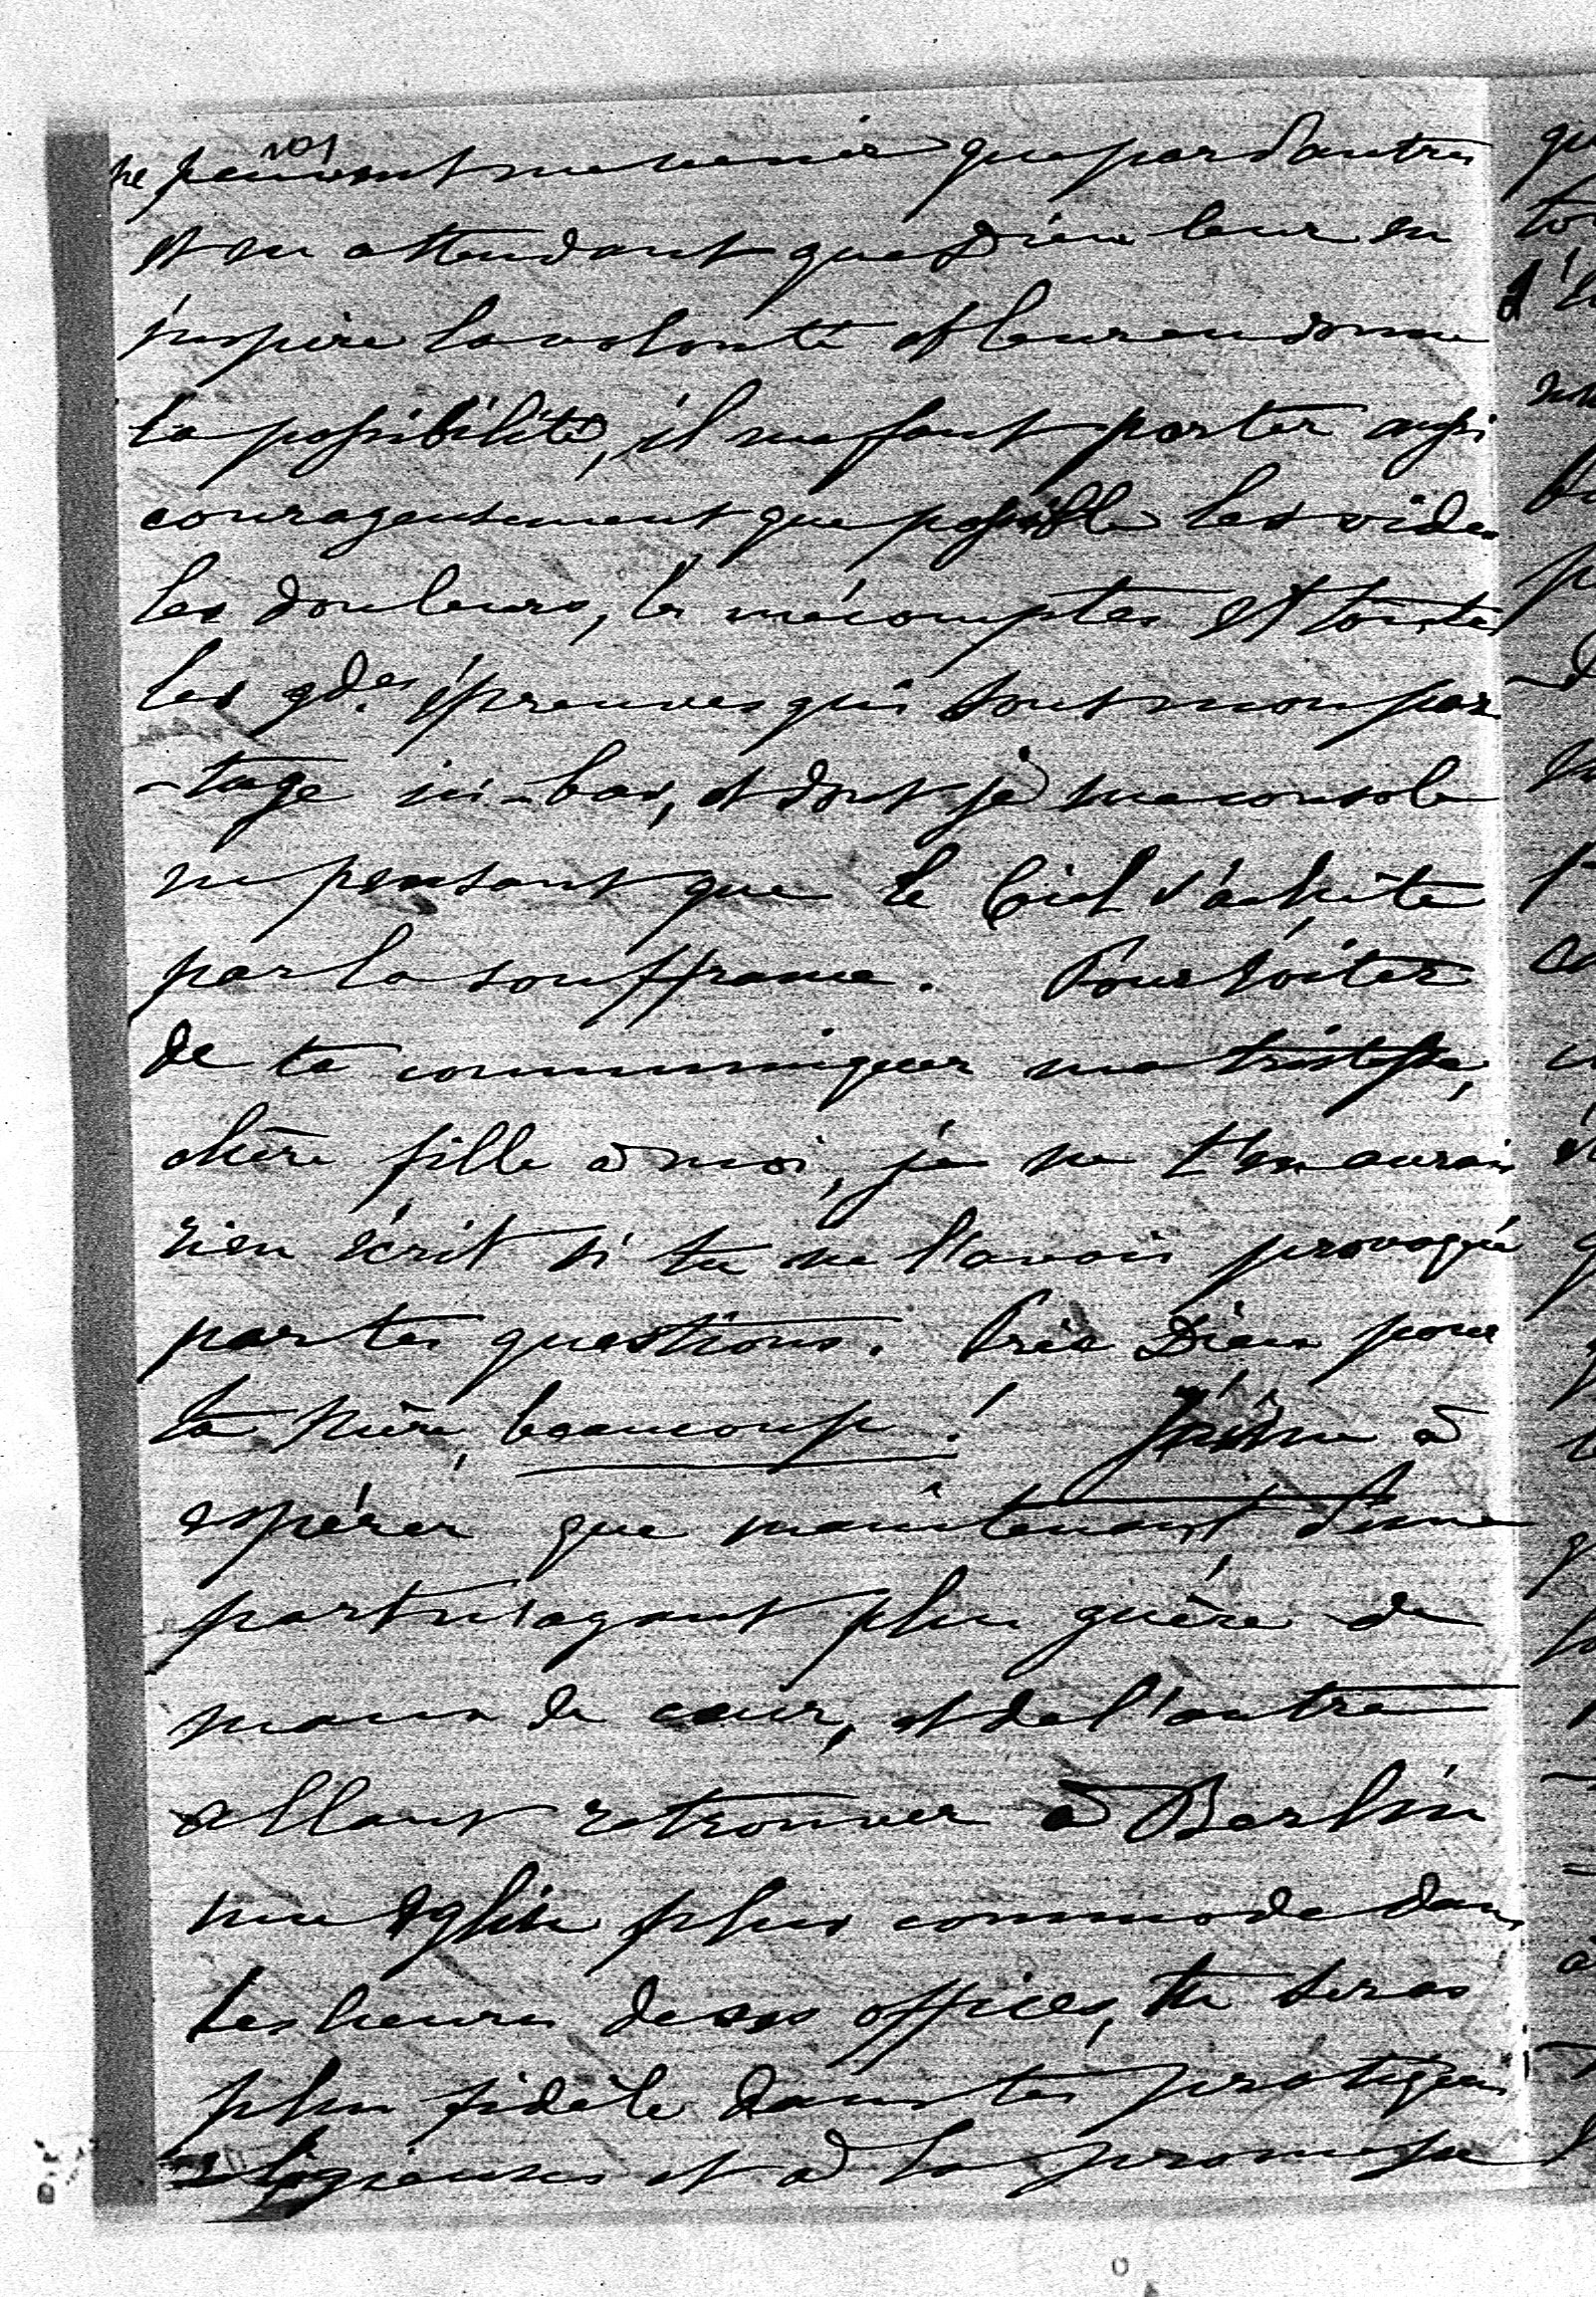 ne peuvent me venir que par d'autres
101
et en attendant que Dieu leur en
inspire la volonté et leur en donne
la possibilité, il me faut porter aussi
courageusement que possible les vides
les douleurs, les mécomptes et toutes
les gdes épreuves qui sont mon par
-tage ici-bas, et dont je me console
en pensant que le Ciel s'achète
par la souffrance. Pour éviter
de te communiquer ma tristesse,
chère fille à moi, je ne t'en aurais
rien écrit si tu ne l'avais provoqué
par tes questions. Prie Dieu pour
ta Mère, beaucoup! J'aime à
espérer que maintenant d'une
part n'ayant plus guère de
maux de cœur, et de l'autre
allant retrouver à Berlin
une Eglise plus commode dans
les heures de ses offices, tu seras
plus fidèle dans tes pratiques
religieuses et à la promesse